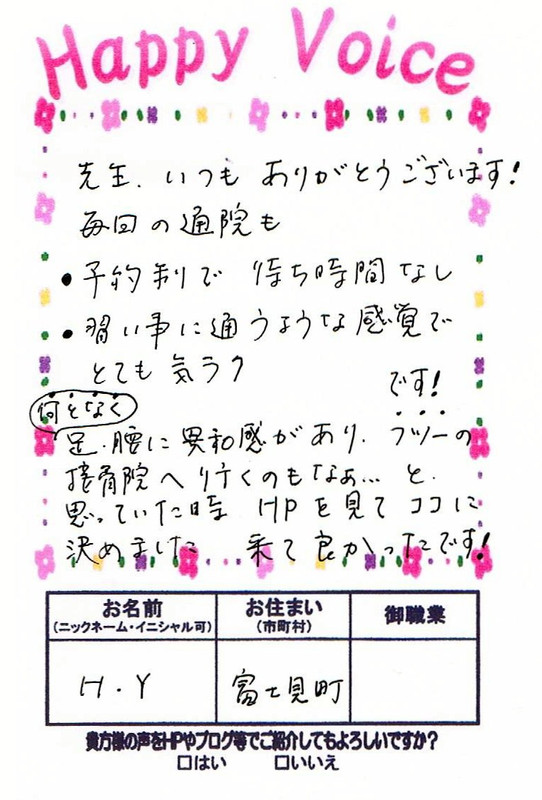 Happy Voice
先生、いつも ありがとうございます!
毎回の通院も
・予約制で 待ち時間なし
・習い事に通うような感覚で
とても気ラク
です!
何となく
足、腰に異和感があり、フツーの
接骨院へ行くのもなぁ… と、
思っていた時 HPを見てココに
決めました 来て良かったです!
お名前
(ニックネーム・イニシャル可)
お住まい
(市町村)
御職業
H.Y
富士見町
貴方様の声をHPやブログ等でご紹介してもよろしいですか?
□はい □いいえ